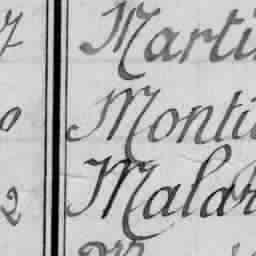 7 Marti
Monti
2 Malar